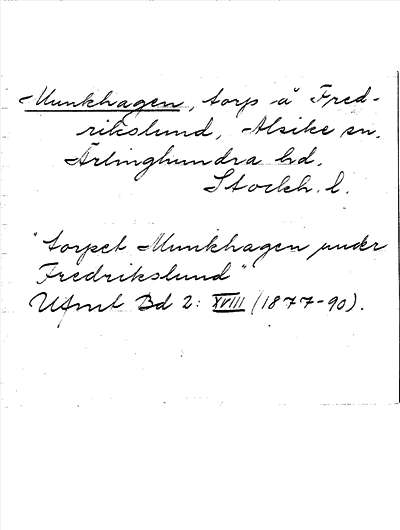 Munkhagen, torp å Fred-
rikslund, Alsike sn.
Ärlinghundra hd.
Stockh. l.
"torpet Munkhagen under
Fredrikslund"
Ufmt Bd 2: XVIII (1877-90).